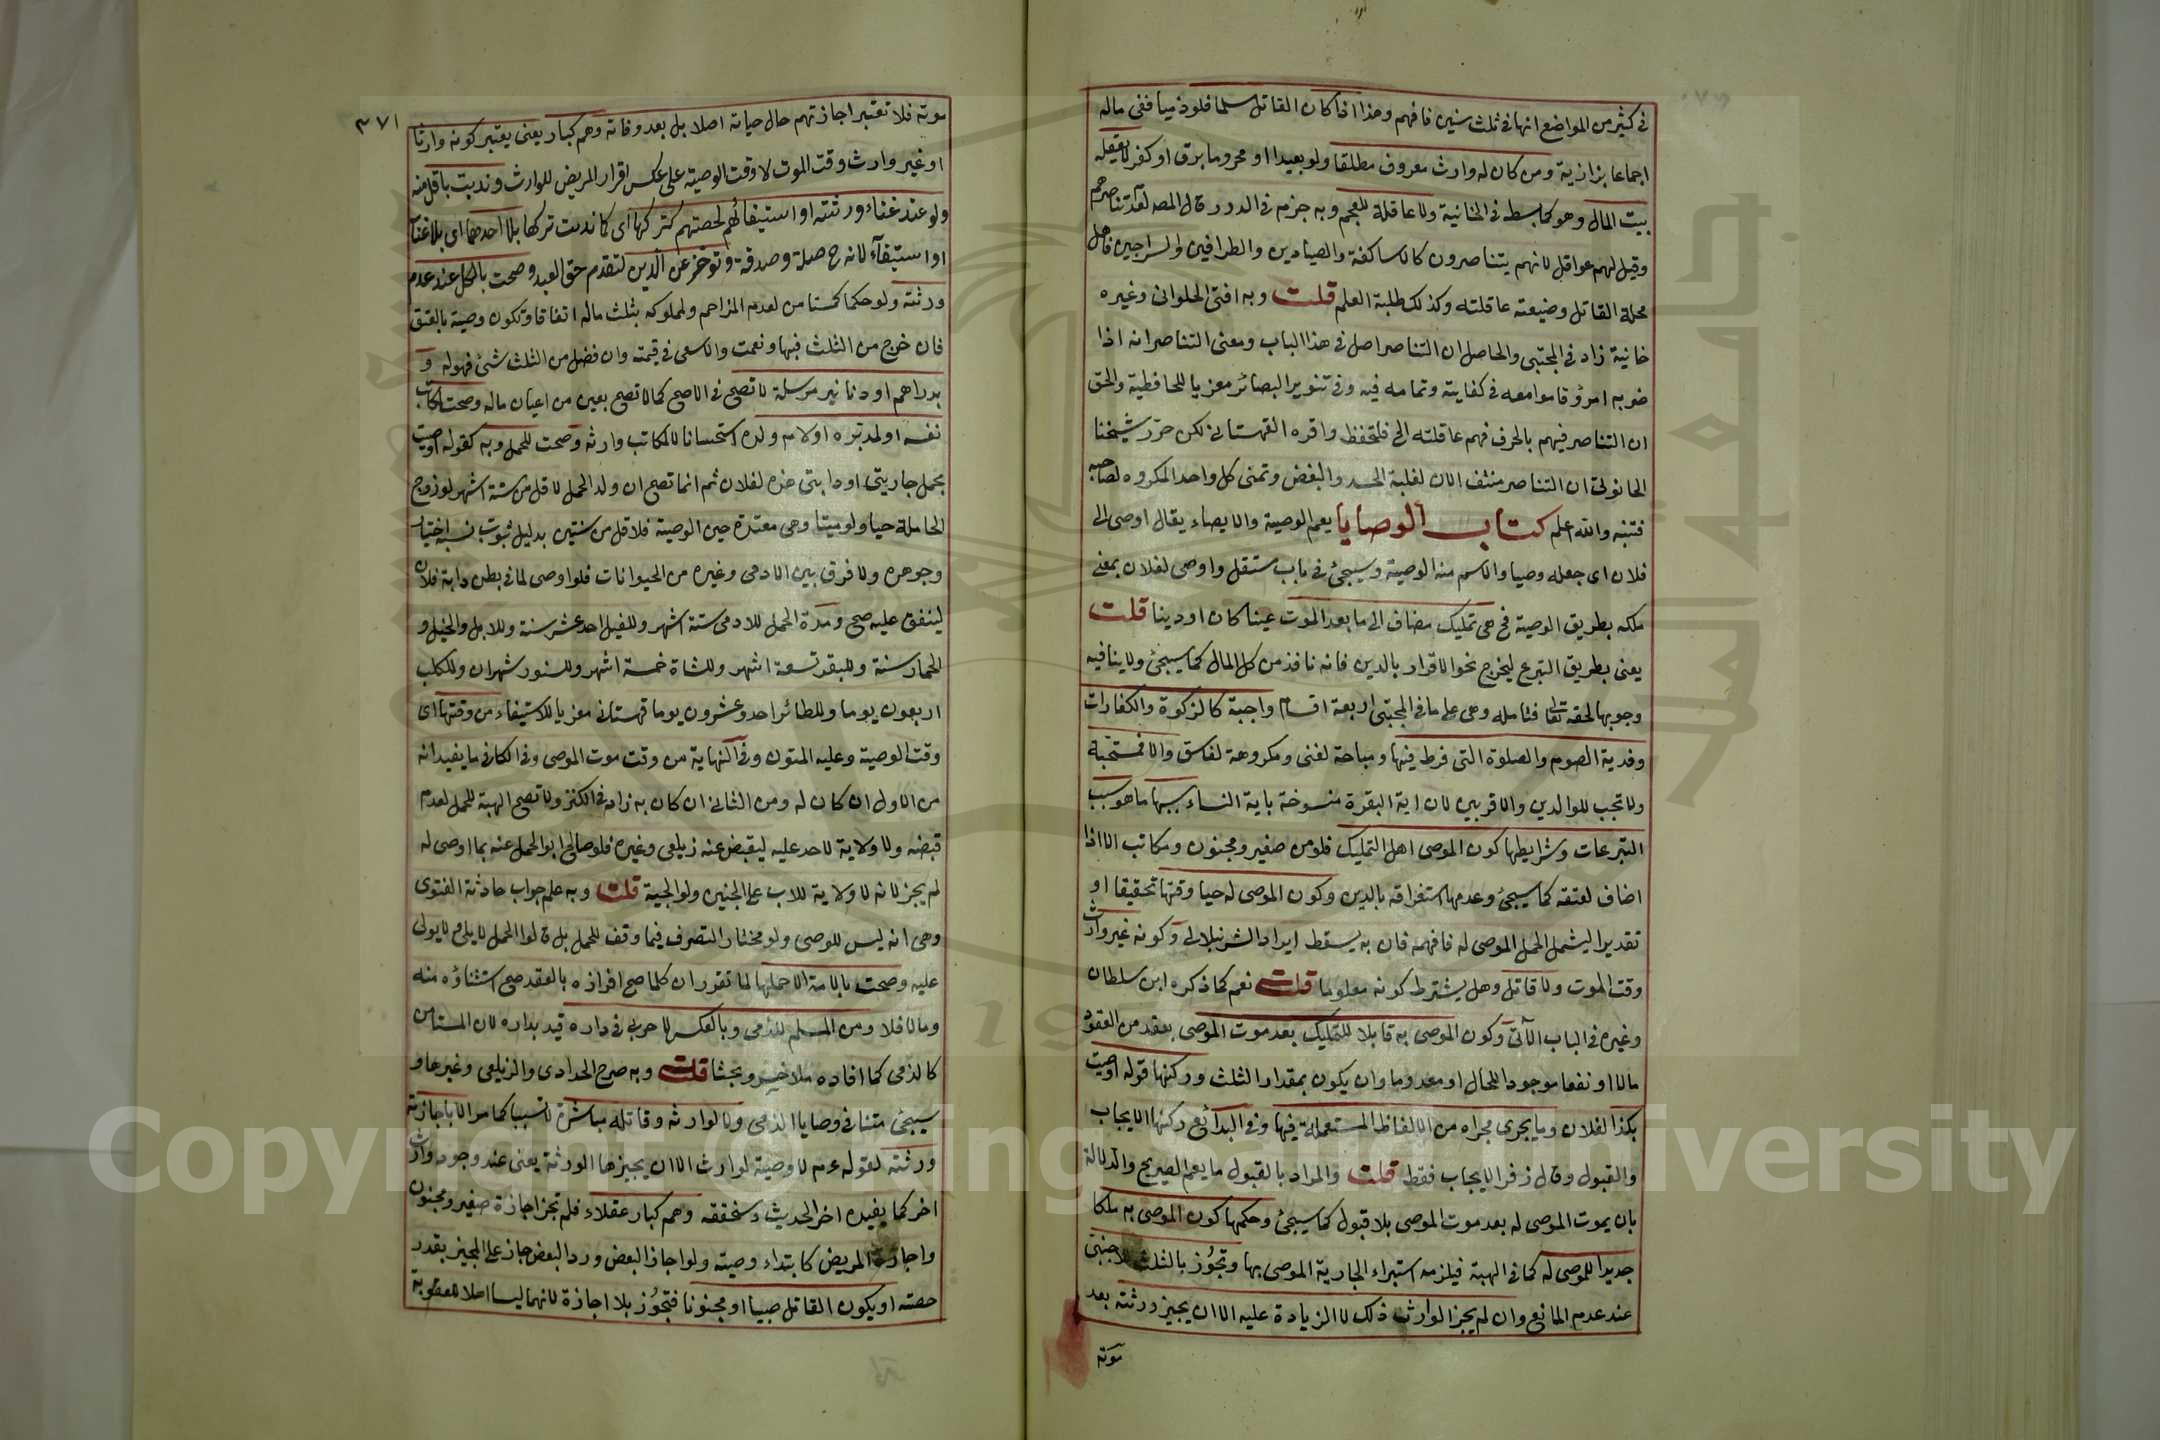 في كثير من المواضع انها في ثلث سنين فافهم وهذا اذا كان القاتل مسلما فلو ذميا ففى ماله
اجماعا بزازية ومن كان له وارث معروف مطلقا ولو بعيدا او محروما برق او كفر لا يعقله
بيت المال وهو كما بسطه في الخانية ولا عاقلة للعجم وبه جزم في الدرر قال المصه لعدم تناصرهم
وقيل لهم عواقل لانهم يتناصرون كالاساكفة والصيادين والطرافين والسراجين فاهل
محلة القاتل وضيعته عاقلته وكذلك طلبة العلم قلت وبه افتى الحلوانى وغيره
خانية زاد في المجتبى والحاصل ان التناصر اصل في هذا الباب ومعنى التناصر انه اذا
ضربه امرؤ قاموا معه في كفايته وتمامه فيه وفي تنوير البصائر معزيا للحافظية والحق
ان التناصر فيهم بالحرف فهم عاقلته الخ فلتحفظ واقره القهستانى لكن حرّر شيخنا
الحانوتى ان التناصر منتف الان لغلبة الحسد والبغض وتمنى كل واحد المكروه لصاحبه
فتنبه والله اعلم كتاب الوصايا يعم الوصية والايصاء يقال اوصى الى
فلان اى جعله وصيا والاسم منه الوصية وسيجئ في باب مستقل واوصى لفلان بمعنى
ملكه بطريق الوصية فح هى تمليك مضاف الى ما بعد الموت عينا كان او دينا قلت
يعنى بطريق التبرع ليخرج نحو الاقرار بالدين فانه نافذ من كل المال كما سيجئ ولا ينافيه
وجوبها لحقه تعالى فتامله وهى على ما في المجتبى اربعة اقسام واجبة كالزكوة والكفارات
وفدية الصوم والصلوة التى فرط فيها ومباحة لغنى ومكروهة لفاسق والا فمستحبة
ولا تجب للوالدين والاقربين لان اية البقرة منسوخة باية النساء سببها ما هو سبب
التبرعات وشرايطها كون الموصى اهل التمليك فلو من صغير ومجنون ومكاتب الا اذا
اضاف لعتقه كما سيجئ وعدمها استغراقه بالدين وكون الموصى له حيا وقتها تحقيقا او
تقديرا ليشمل الحمل الموصى له فافهمه فان به يسقط ايراد الشرنبلالى وكونه غير وارث
وقت الموت ولا قاتل وهل يشترط كونه معلوما قلت نعم كما ذكره ابن سلطان
وغيره في الباب الآتى وكون الموصى به قابلا للتمليك بعد موت الموصى بعقد من العقود
مالا او نفعا موجودا للحال او معدوما وان يكون بمقدار الثلث وركنها قوله اوصيت
بكذا لفلان وما يجرى مجراه من الالفاظ المستعملة فيها وفي البدائع ركنها الايجاب
والقبول وقال زفر الايجاب فقط قلت والمراد بالقبول ما يعم الصريح والدلالة
بان يموت الموصى له بعد موت الموصى بلا قبول كما سيجئ وحكمها كون الموصى به ملكا
جديدا للموصى له كما في الهبة فيلزمه استبراء الجارية الموصى بها وتجوز بالثلث للاجنبى
عند عدم المانع وان لم يجز الوارث ذلك لا الزيادة عليه الا ان يجيز ورثته بعد
موته
٣٧١
موته فلا تعتبر اجازتهم حال حياته اصلا بل بعد وفاته وهم كبار يعنى يعتبر كونه وارثا
او غير وارث وقت الموت لا وقت الوصية على عكس اقرار المريض للوارث وندبت باقل منه
ولو عند غناء ورثته او استيفائهم لحصتهم كتركها اى كما ندبت تركها بلا احدهما اى بلا غناء
او استيفآء لانه ح صلة وصدقة وتوخر عن الدين لتقدم حق العبد وصحت بالكل عند عدم
ورثته ولو حكما كمستامن لعدم المزاحم ولمملوكه بثلث ماله اتفاقا وتكون وصية بالعتق
فان خرج من الثلث فبها ونعمت والاسعى في قيمته وان فضل من الثلث شئ فهو له و
بدراهم او دنانير مرسلة لا تصح في الاصح كما لا تصح بعين من اعيان ماله وصحت لمكاتب
نفسه او لمدبره او لام ولده استحسانا لا لمكاتب وارثه وصحت للحمل وبه كقوله اوصيت
بحمل جاريتى او دابتى هذه لفلان ثم انما تصح ان ولد الحمل لاقل من ستة اشهر لو زوج
الحاملة حيا ولو ميتا وهى معتدة حين الوصية فلاقل من سنتين بدليل ثبوت نسبه اختيار
وجوهره ولا فرق بين الادمى وغيره من الحيوانات فلو اوصى لما في بطن دابة فلان
لينفق عليه صح ومدة الحمل للادمى ستة اشهر وللفيل احد عشر سنة وللابل والخيل و
للحمار سنة وللبقر تسعة اشهر وللشاة خمسة اشهر وللسنور شهران وللكلب
اربعون يوما وللطائر احد وعشرون يوما قهستانى معزيا للاستيفاء من وقتها اى
وقت الوصية وعليه المتون وفي النهاية من وقت موت الموصى وفي الكافي ما يفيد انه
من الاول ان كان له ومن الثانى ان كان به زاد في الكنز ولا تصح الهبة للحمل لعدم
قبضه ولا ولاية لاحد عليه ليقبض عنه زيلعى وغيره فلو صالح ابو الحمل عنه بما اوصى له
لم يجز لانه لا ولاية للاب على الجنين ولو الجية قلت وبه علم جواب حادثة الفتوى
وهى انه ليس للوصى ولو مختار التصرف فيما وقف للحمل بل قالوا الحمل لا يلى ولا يولى
عليه وصحت بالامة الا حملها لما تقرر ان كلما صح افراده بالعقد صح استثناؤه منه
وما لا فلا ومن المسلم للذمى وبالعكس لا حربى في داره قيد بداره لان المستامن
كالذمى كما افاده ملاخسرو بحثا قلت وبه صرح الحدادى والزيلعى وغيرهما و
سيجئ متنا في وصايا الذمى ولا لوارثه وقاتله مباشرة لا تسببا كما مر الا باجازة
ورثته لقوله عم لا وصية لوارث الا ان يجيزها الورثة يعنى عند وجود وارث
اخر كما يفيده اخر الحديث وسنحققه وهم كبار عقلاء فلم تجز اجازة صغير ومجنون
واجازة المريض كابتداء وصيته ولو اجاز البعض ورد البعض جاز على المجيز بقدر
حصته او يكون القاتل صبيا او مجنونا فتجوز بلا اجازة لانهما ليسا اهلا للعقوبة
Copyright © King Saud University